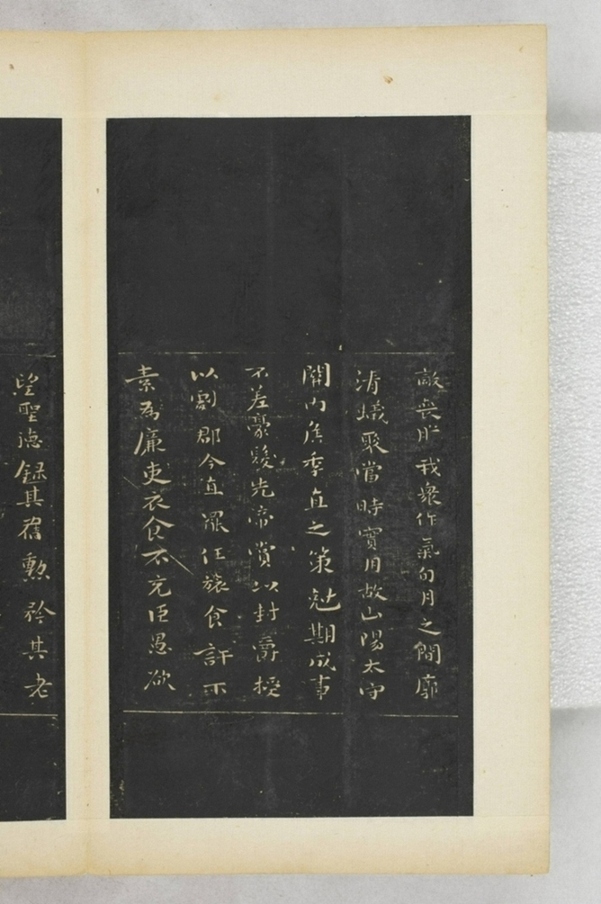 敵喪膽我衆作氣旬月之間廓
清蟻聚當時實用故山陽太守
關內侯季直之策尅期成事
不差豪髮先帝賞以封爵授
以劇郡今直罷任旅食許下
素爲廉吏衣食不充臣愚欲
望聖德錄其舊勲矜其老